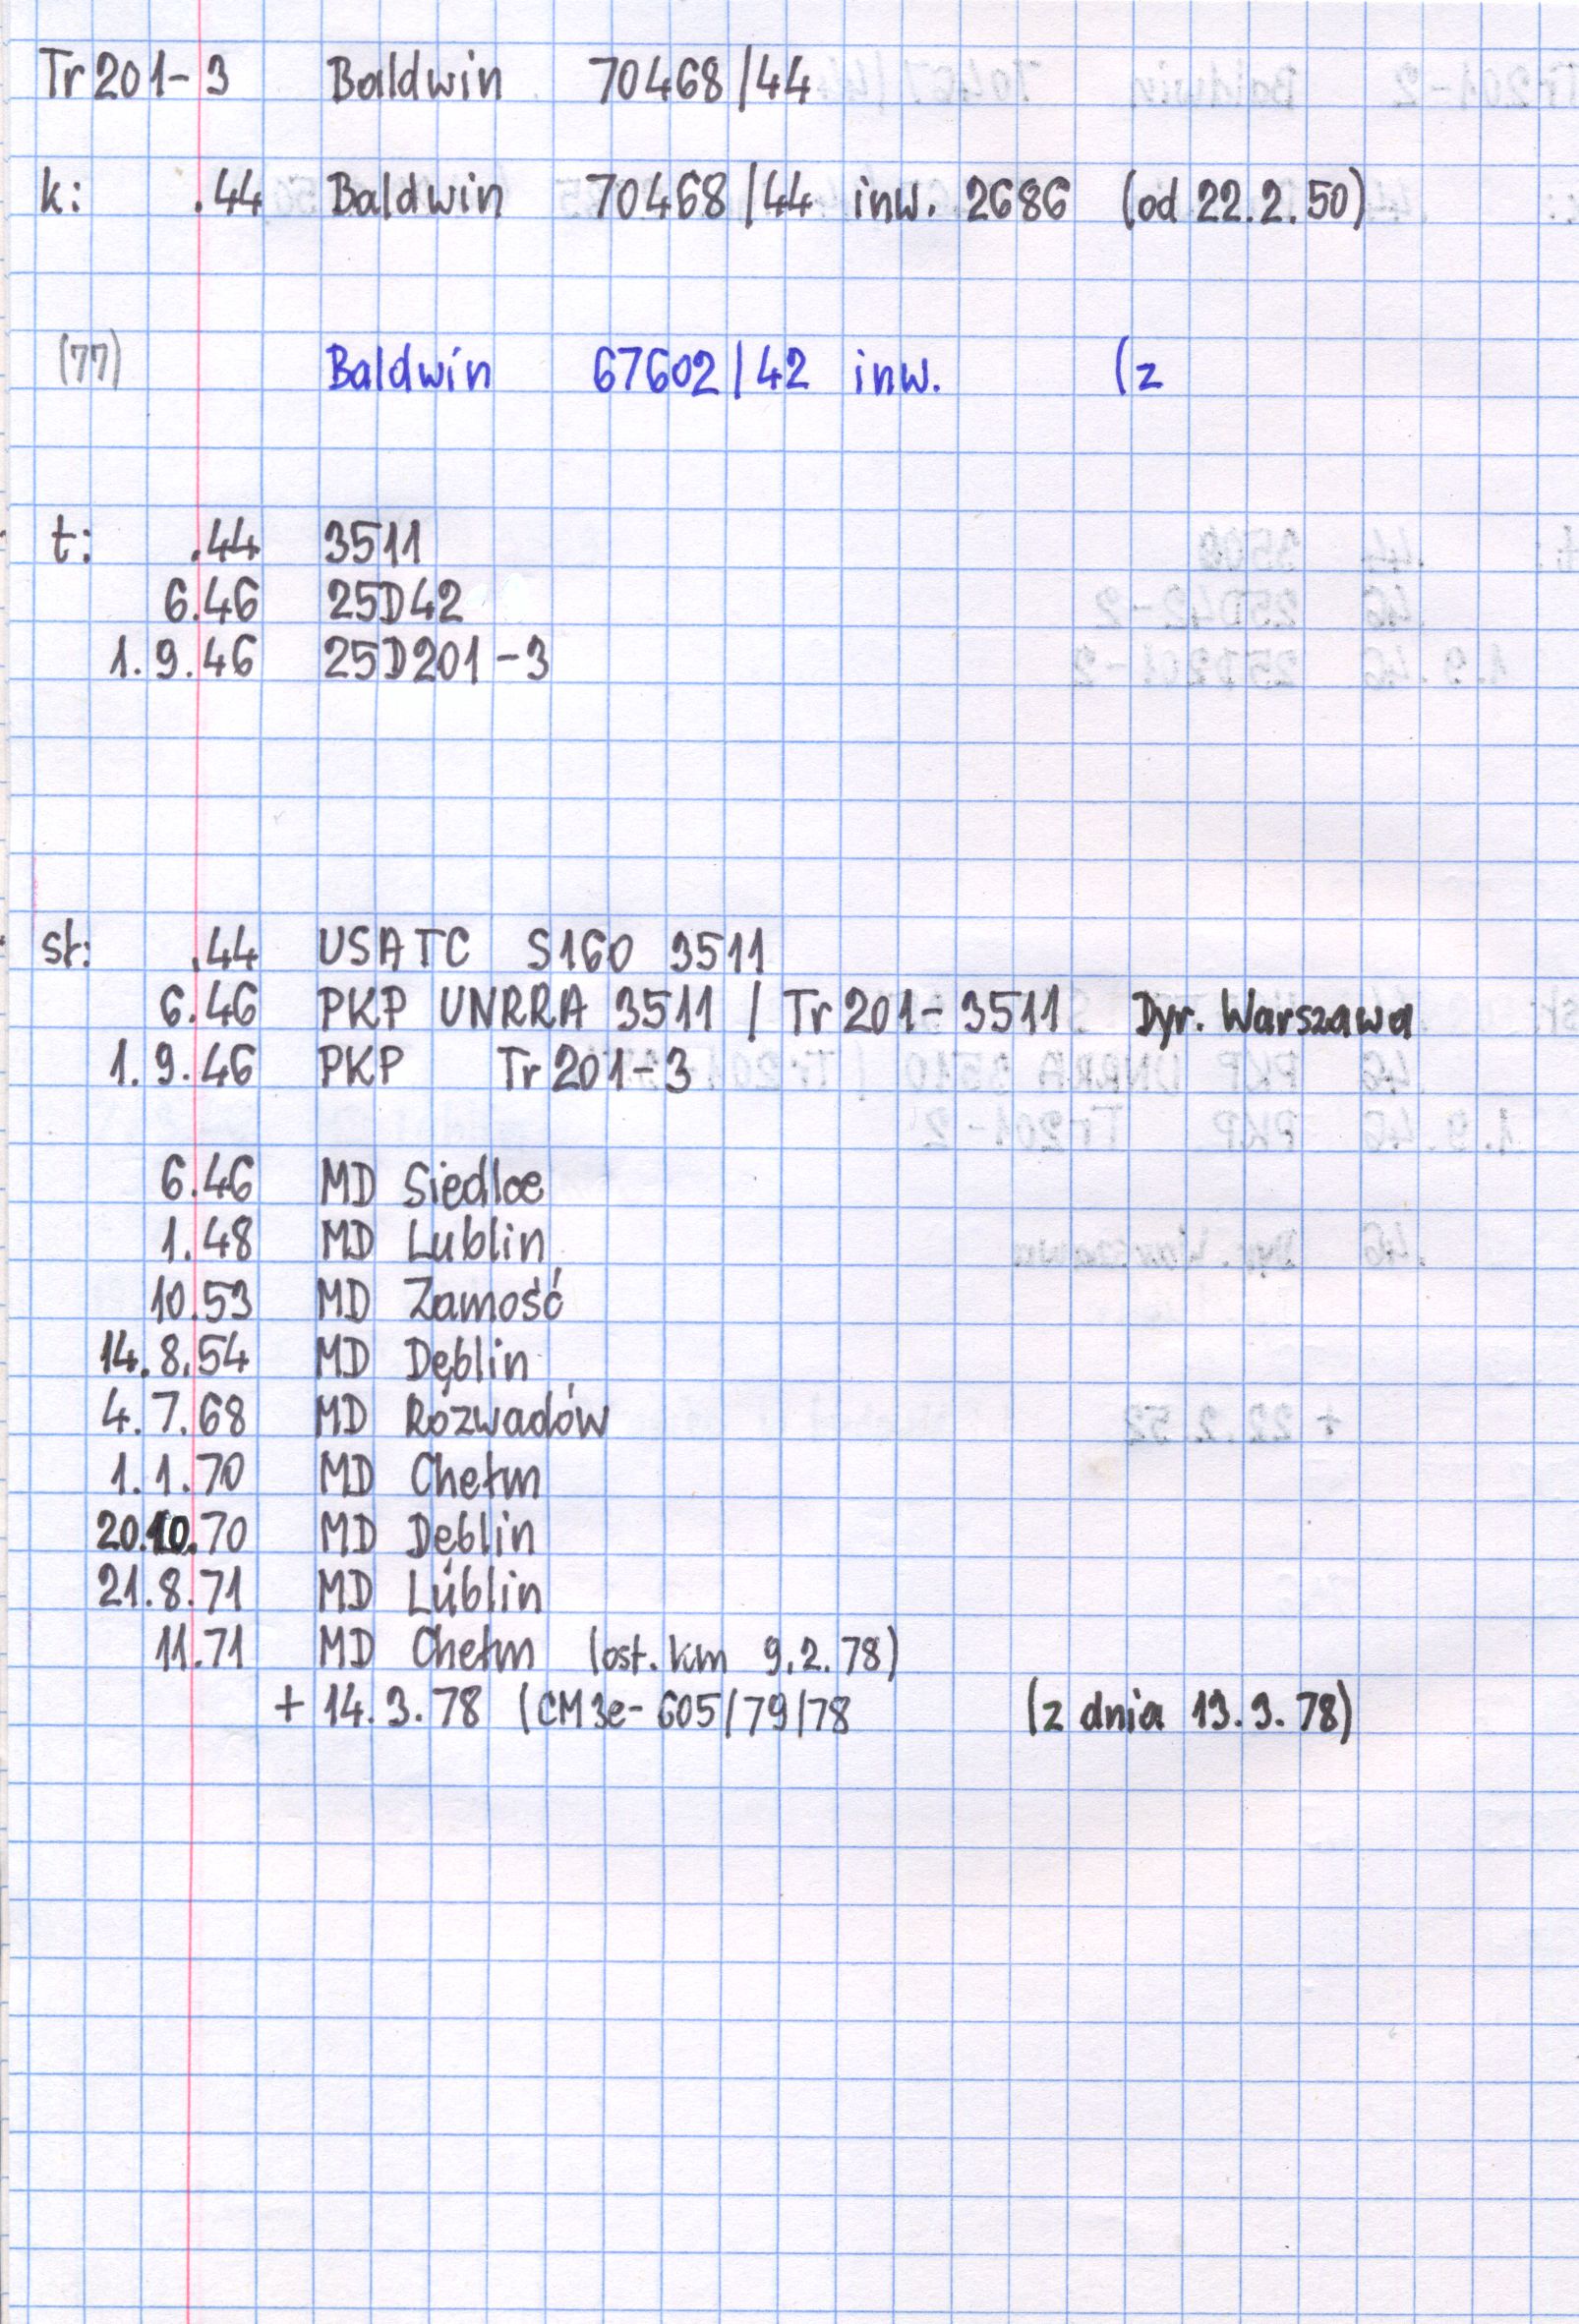 Tr201-3 Baldwin 70468/44
k: .44 Baldwin 70468/44 inw. 2686 (od 22.2.50)
(77) Baldwin 67602/42 inw. (z
t: .44 3511
6.46 25D42
1.9.46 25D201-3
st: .44 USATC S160 3511
6.46 PKP UNRRA 3511 / Tr201-3511 Dyr. Warszawa
1.9.46 PKP Tr201-3
6.46 MD Siedlce
1.48 MD Lublin
10.53 MD Zamość
14.8.54 MD Dęblin
4.7.68 MD Rozwadów
1.1.70 MD Chełm
20.10.70 MD Dęblin
21.8.71 MD Lublin
11.71 MD Chełm (ost. km 9.2.78)
+ 14.3.78 (CM3e-605/79/78 (z dnia 13.3.78)